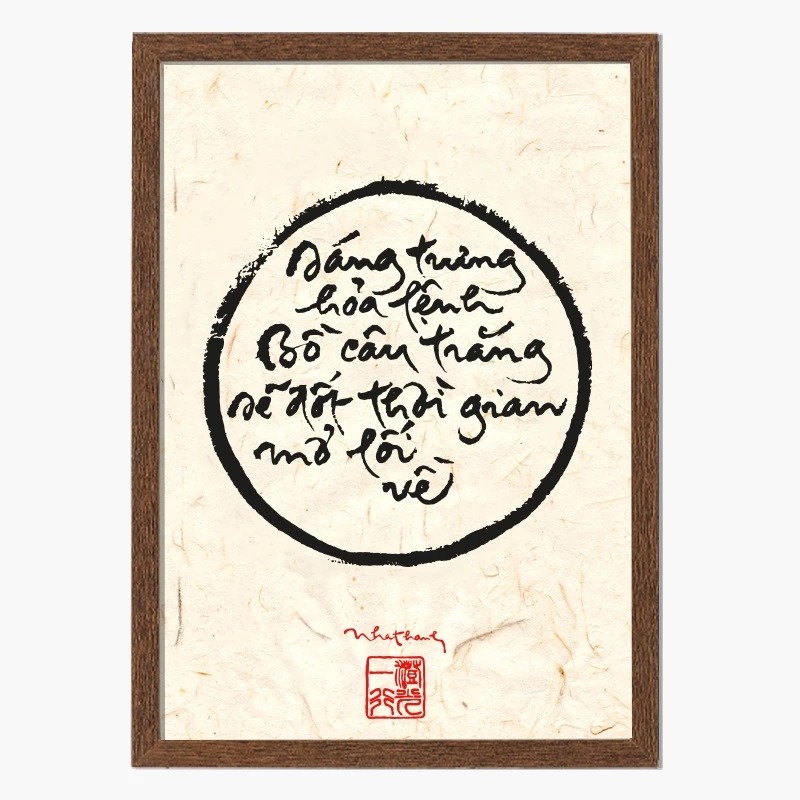 Sáng trưng
hỏa lệnh
Bồ câu trắng
sẽ đốt thời gian
mở lối
về
Nhathanh
澄光
一行